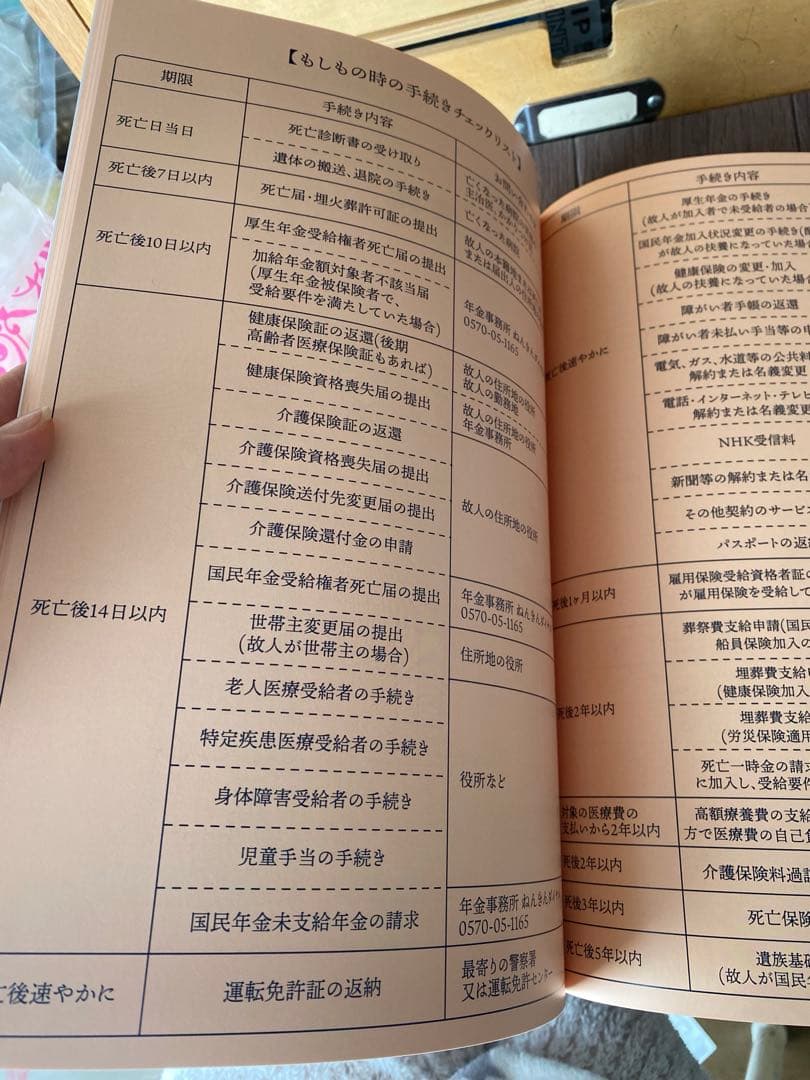 【もしもの時の手続きチェックリスト】
期限
手続き内容
死亡日当日
死亡診断書の受け取り
遺体の搬送、退院の手続き
亡くなった病院
死亡後7日以内
死亡届・埋火葬許可証の提出
故人の本籍地
または届出人の住所地
死亡後10日以内
厚生年金受給権者死亡届の提出
加給年金額対象者不該当届
(厚生年金被保険者で、
受給要件を満たしていた場合)
年金事務所 ねんきんダイヤル
0570-05-1165
死亡後14日以内
健康保険証の返還(後期
高齢者医療保険証もあれば)
故人の住所地の役所
故人の勤務地
健康保険資格喪失届の提出
故人の住所地の役所
年金事務所
介護保険証の返還
介護保険資格喪失届の提出
介護保険送付先変更届の提出
介護保険還付金の申請
故人の住所地の役所
国民年金受給権者死亡届の提出
年金事務所 ねんきんダイヤル
0570-05-1165
世帯主変更届の提出
(故人が世帯主の場合)
住所地の役所
老人医療受給者の手続き
特定疾患医療受給者の手続き
身体障害受給者の手続き
児童手当の手続き
役所など
国民年金未支給年金の請求
年金事務所 ねんきんダイヤル
0570-05-1165
亡後速やかに
運転免許証の返納
最寄りの警察署
又は運転免許センター
期限
手続き内容
死亡後速やかに
厚生年金の手続き
(故人が加入者で未受給者の場合)
国民年金加入状況変更の手続き(配
が故人の扶養になっていた場合
健康保険の変更・加入
(故人の扶養になっていた場合
障がい者手帳の返還
障がい者未払い手当等の申
電気、ガス、水道等の公共料
解約または名義変更
電話・インターネット・テレビ
解約または名義変更
NHK受信料
新聞等の解約または名
その他契約のサービス
パスポートの返納
死後1ヶ月以内
雇用保険受給資格者証の
が雇用保険を受給して
死後2年以内
葬祭費支給申請(国民
船員保険加入の
埋葬費支給申
(健康保険加入
埋葬費支給
(労災保険適用
死亡一時金の請求
に加入し、受給要件
対象の医療費の
支払いから2年以内
高額療養費の支給
方で医療費の自己負
死後2年以内
介護保険料過誤
死後3年以内
死亡保険
死亡後5年以内
遺族基礎
(故人が国民年